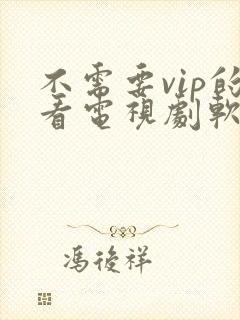 不需要vip的
看電視劇軟
馮後祥